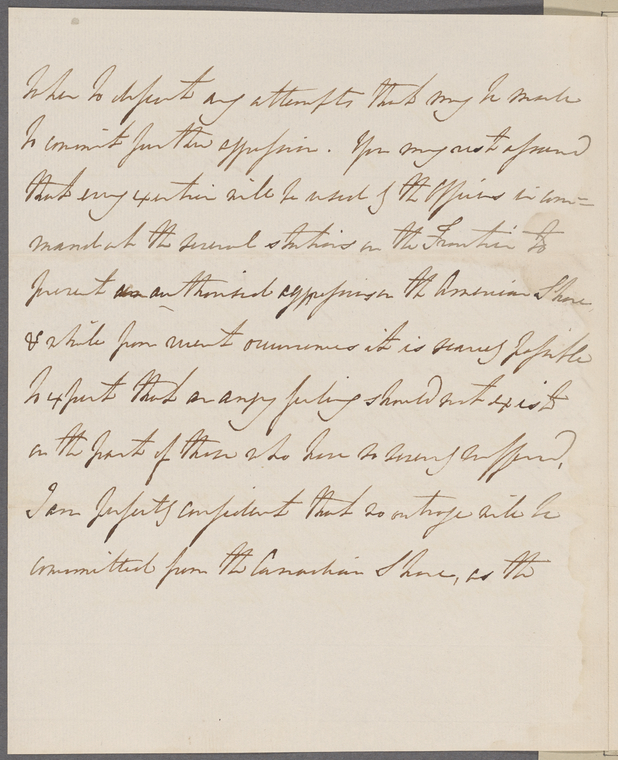 when to defeat any attempts that may be made
to commit further aggression. You may rest assured
that every exertion will be used by the Officers in com=
mand at the several stations on the Frontier to
prevent unauthorised aggression on the American Shore
& while from recent occurrences it is scarcely possible
to expect that an angry feeling should not exist
on the part of those who have so severely suffered,
I am perfectly confident that no outrage will be
committed from the Canadian Shore, as the